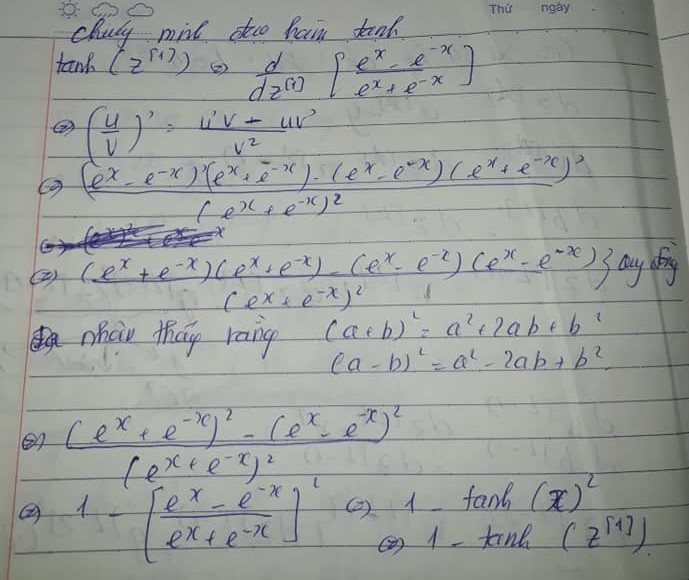 Thứ ngày
chứng minh đạo hàm tanh
tanh (z^[1]) ⇔ d/dz^[1] [(e^x - e^-x)/(e^x + e^-x)]
⇔ (u/v)' = (u'v - uv')/v^2
⇔ ((e^x - e^-x)'(e^x + e^-x) - (e^x - e^-x)(e^x + e^-x)')/(e^x + e^-x)^2
⇔ ((e^x + e^-x)(e^x + e^-x) - (e^x - e^-x)(e^x - e^-x))/(e^x + e^-x)^2 } quy đồng
nhận thấy rằng (a+b)^2 = a^2 + 2ab + b^2
(a-b)^2 = a^2 - 2ab + b^2
⇔ ((e^x + e^-x)^2 - (e^x - e^-x)^2)/(e^x + e^-x)^2
⇔ 1 - [(e^x - e^-x)/(e^x + e^-x)]^2 ⇔ 1 - tanh (x)^2
⇔ 1 - tanh (z^[1])